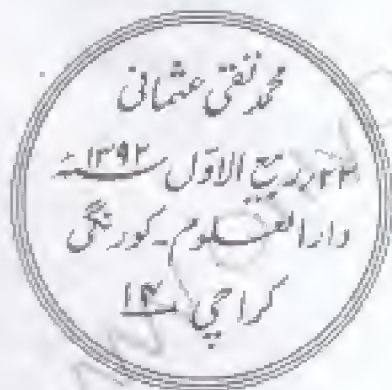 محمد تقی عثمانی
۲۲ ربیع الاول ۱۳۹۲ھ
دارالعلوم۔ کورنگی
کراچی ۱۴